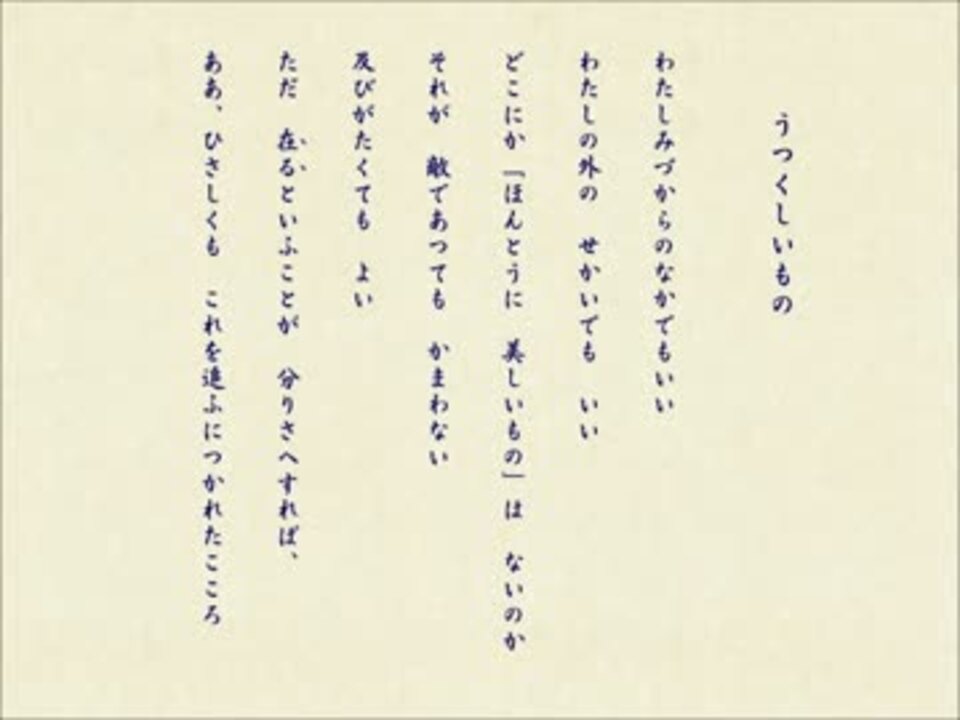 うつくしいもの
わたしみづからのなかでもいい
わたしの外の　せかいでも　いい
どこにか「ほんとうに　美しいもの」は　ないのか
それが　敵であつても　かまわない
及びがたくても　よい
ただ　在るといふことが　分りさへすれば、
ああ、ひさしくも　これを追ふにつかれたこころ